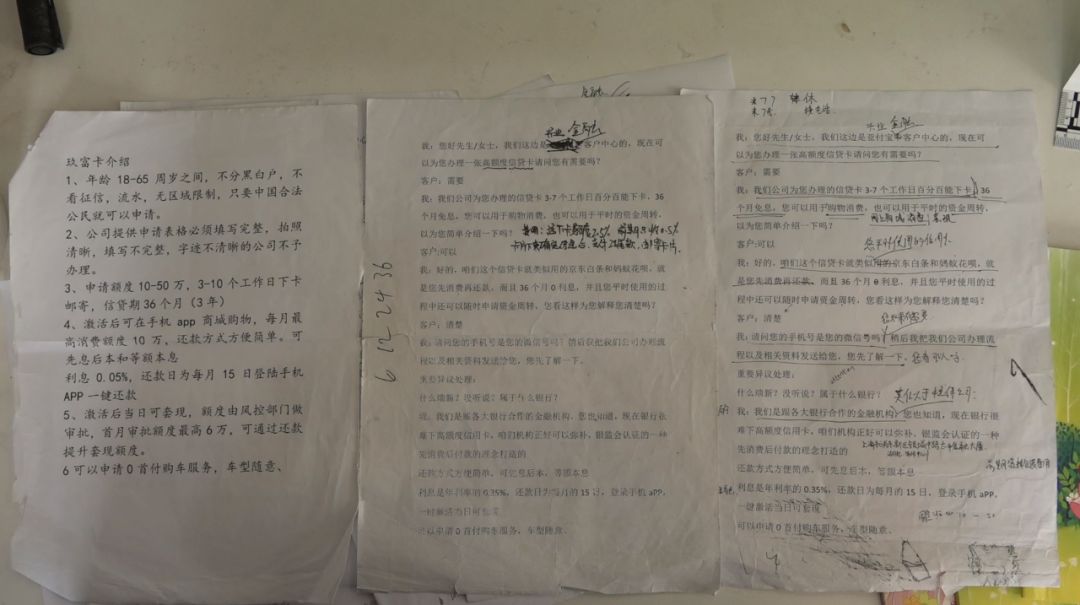 玖富卡介绍
1、年龄 18-65 周岁之间，不分黑白户，不
看征信，流水，无区域限制，只要中国合法
公民就可以申请。
2、公司提供申请表格必须填写完整，拍照
清晰，填写不完整，字迹不清晰的公司不予
办理。
3、申请额度 10-50 万，3-10 个工作日下卡
邮寄，信贷期 36 个月（3 年）
4、激活后可在手机 app 商城购物，每月最
高消费额度 10 万，还款方式方便简单。可
先息后本和等额本息
利息 0.05%，还款日为每月 15 日登陆手机
APP 一键还款
5、激活后当日可套现，额度由风控部门做
审批，首月审批额度最高 6 万，可通过还款
提升套现额度。
6 可以申请 0 首付购车服务，车型随意、
金融
我：您好先生/女士，我们这边是客户中心的，现在可
以为您办理一张高额度信贷卡请问您有需要吗？
客户：需要
我：我们公司为您办理的信贷卡 3-7 个工作日百分百能下卡，36
个月免息，您可以用于购物消费，也可以用于平时的资金周转，
以为您简单介绍一下吗？
客户:可以
我：好的，咱们这个信贷卡就类似用的京东白条和蚂蚁花呗，就
是您先消费再还款，而且 36 个月 0 利息，并且您平时使用的过
程中还可以随时申请资金周转，您看这样为您解释您清楚吗？
客户：清楚
我：请问您的手机号是您的微信号吗？稍后我把我们公司办理流
程以及相关资料发送给您，您先了解一下。
重要异议处理：
什么瑞新？没听说？属于什么银行？
我：我们是跟各大银行合作的金融机构，您也知道，现在银行很
难下高额度信用卡，咱们机构正好可以弥补，银监会认证的一种
先消费后付款的理念打造的
还款方式方便简单，可先息后本，等额本息
利息是年利率的 0.35%，还款日为每月的 15 日，登录手机 aPP，
一键激活当日可套现
可以申请 0 首付购车服务，车型随意。
6 12-2436
金融
我：您好先生/女士，我们这边是亚付宝客户中心的，现在可
以为您办理一张高额度信贷卡请问您有需要吗？
客户：需要
我：我们公司为您办理的信贷卡 3-7 个工作日百分百能下卡，36
个月免息，您可以用于购物消费，也可以用于平时的资金周转，
以为您简单介绍一下吗？
客户:可以
我：好的，咱们这个信贷卡就类似用的京东白条和蚂蚁花呗，就
是您先消费再还款，而且 36 个月 0 利息，并且您平时使用的过
程中还可以随时申请资金周转，您看这样为您解释您清楚吗？
客户：清楚
我：请问您的手机号是您的微信号吗？稍后我把我们公司办理流
程以及相关资料发送给您，您先了解一下。
重要异议处理：
什么瑞新？没听说？属于什么银行？
我：我们是跟各大银行合作的金融机构，您也知道，现在银行很
难下高额度信用卡，咱们机构正好可以弥补，银监会认证的一种
先消费后付款的理念打造的
还款方式方便简单，可先息后本，等额本息
利息是年利率的 0.35%，还款日为每月的 15 日，登录手机 aPP，
一键激活当日可套现
可以申请 0 首付购车服务，车型随意。